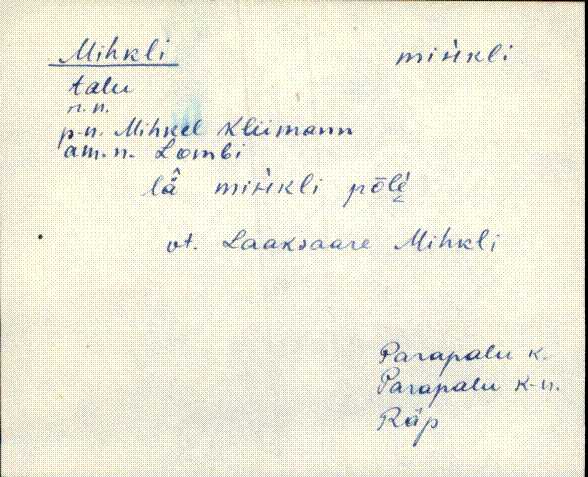 Mihkli mih̀kli
talu
n.n.
p.n. Mihkel Kliimann
am.n. Lombi
lǟ̂ mih̀kli pōlé̬
vt. Laaksaare Mihkli
Parapalu k.
Parapalu k-n.
Räp